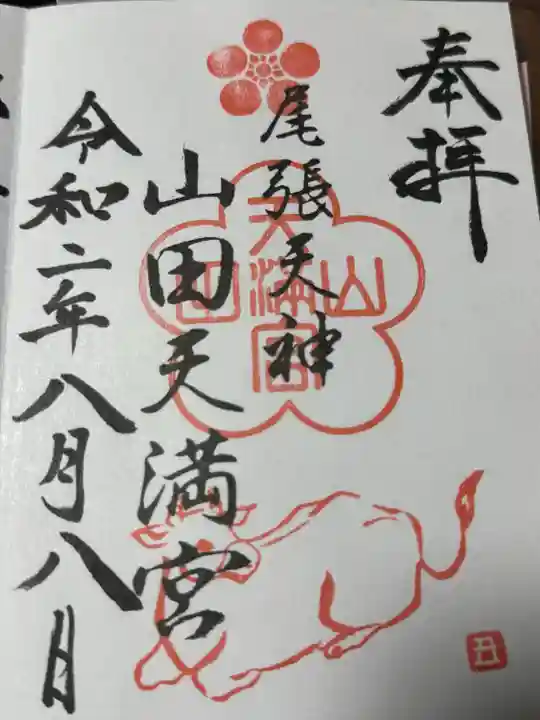 奉拝
尾張天神
山田天満宮
令和二年八月八日
山
天満宮
田
丑